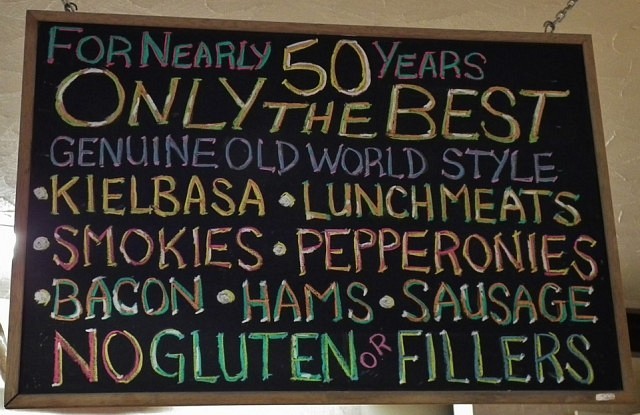 FOR NEARLY 50 YEARS
ONLY THE BEST
GENUINE OLD WORLD STYLE
• KIELBASA • LUNCHMEATS
• SMOKIES • PEPPERONIES
• BACON • HAMS • SAUSAGE
NO GLUTEN OR FILLERS